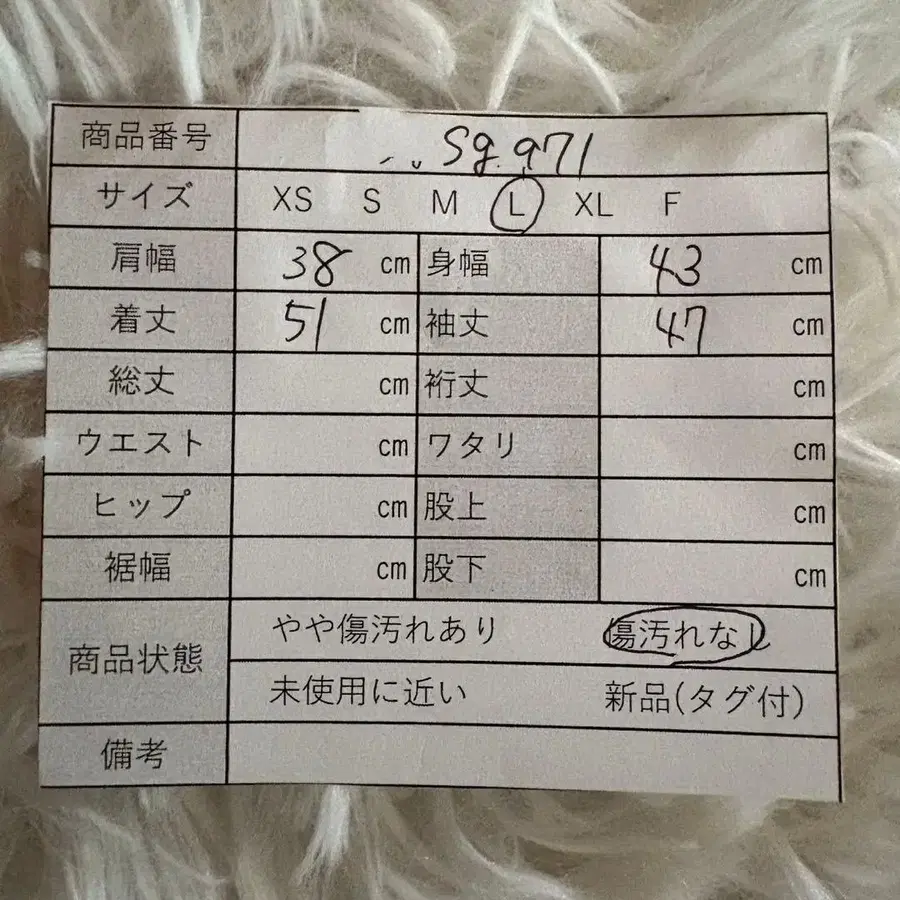 商品番号 Sg.971
サイズ XS S M L XL F
肩幅 38 cm 身幅 43 cm
着丈 51 cm 袖丈 47 cm
総丈 cm 裄丈 cm
ウエスト cm ワタリ cm
ヒップ cm 股上 cm
裾幅 cm 股下 cm
商品状態 やや傷汚れあり 傷汚れなし
未使用に近い 新品(タグ付)
備考